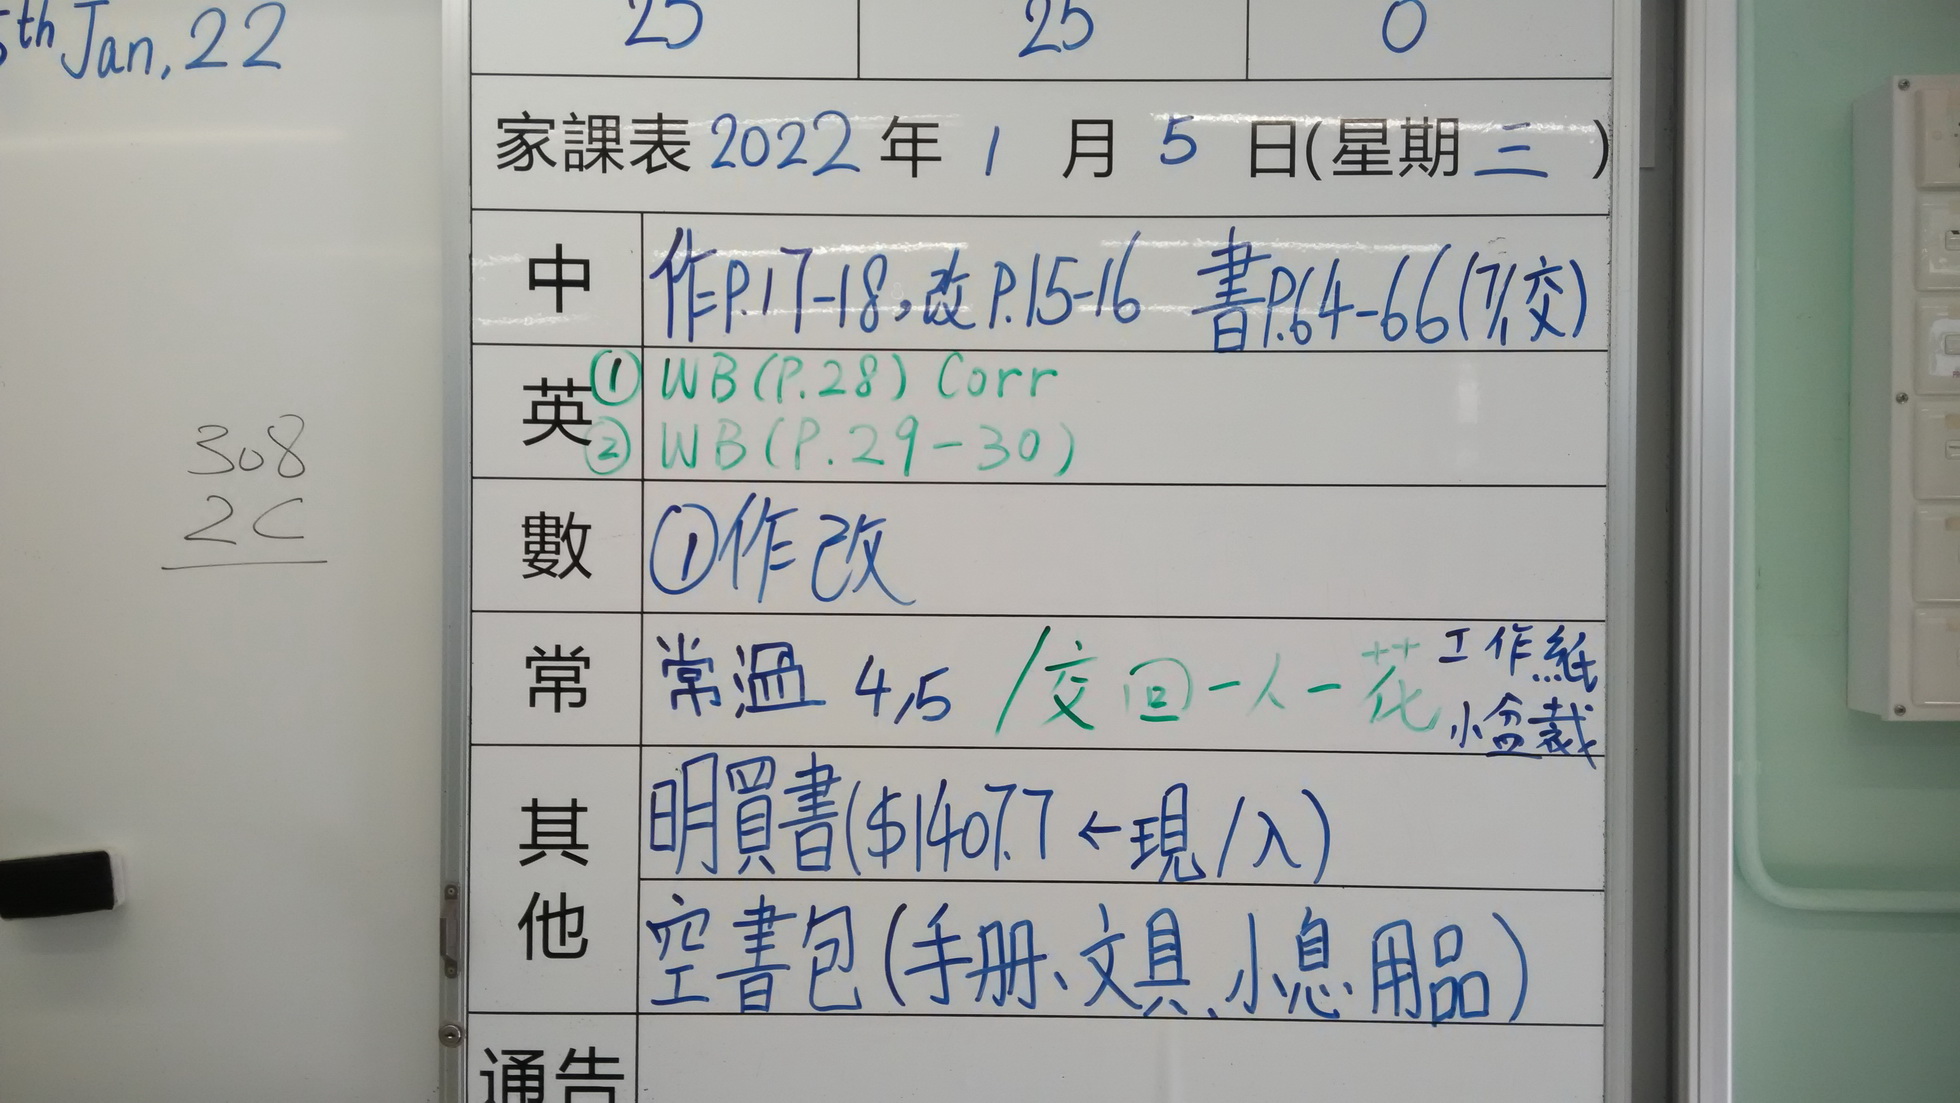 5th Jan, 22
308
2C
25 25 0
家課表 2022 年 1 月 5 日(星期 三 )
中 作P.17-18,改P.15-16 書P.64-66(7/1交)
英 ① WB(P.28) Corr
② WB(P.29-30)
數 ①作改
常 常溫 4,5 /交回一人一花 工作紙
小盆栽
其他 明買書($1407.7 ←現/入)
空書包(手册、文具、小息用品)
通告